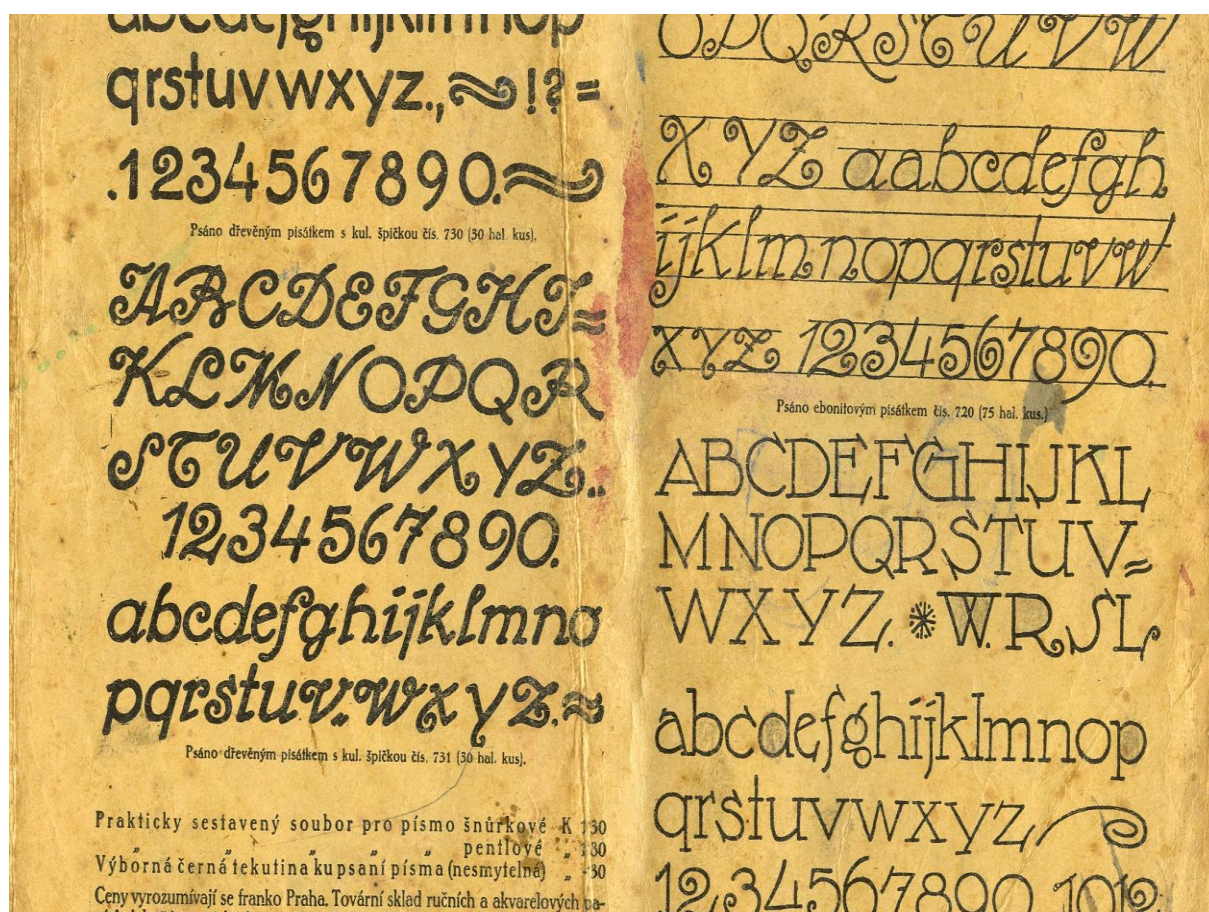 abcdefghijklmnop
qrstuvwxyz.,~!?=
.1234567890.~
Psáno dřevěným pisátkem s kul. špičkou čís. 730 (30 hal. kus).
ABCDEFGHI=
KLMNOPQR
STUVWXYZ..
1234567890.
abcdefghijklmno
pqrstuv.wxyz.=
Psáno dřevěným pisátkem s kul. špičkou čís. 731 (30 hal. kus).
Prakticky sestavený soubor pro písmo šnůrkové K 1·30
„ „ „ „ „ pentlové „ 1·30
Výborná černá tekutina ku psaní písma (nesmytelná) „ -·30
Ceny vyrozumívají se franko Praha. Tovární sklad ručních a akvarelových pa-
OPQRSTUVW
XYZ aabcdefgh
ijklmnopqrstuvw
xyz 1234567890.
Psáno ebonitovým pisátkem čís. 720 (75 hal. kus.)
ABCDEFGHIJKL
MNOPQRSTUV=
WXYZ. * W. R. S L
abcdefghijklmnop
qrstuvwxyz
1234567890 1012